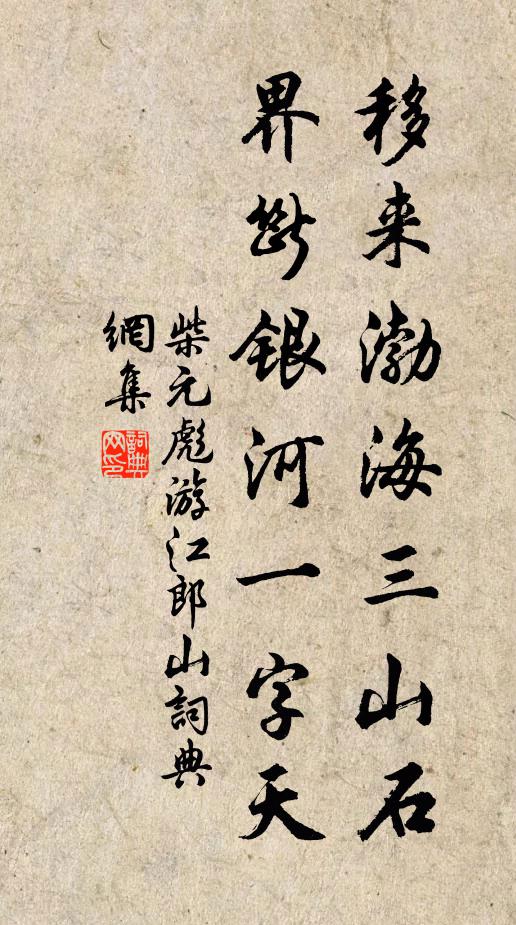 移来渤海三山石
界斷銀河一字天
柴元彪游江郎山詞典
網集
詞典網印